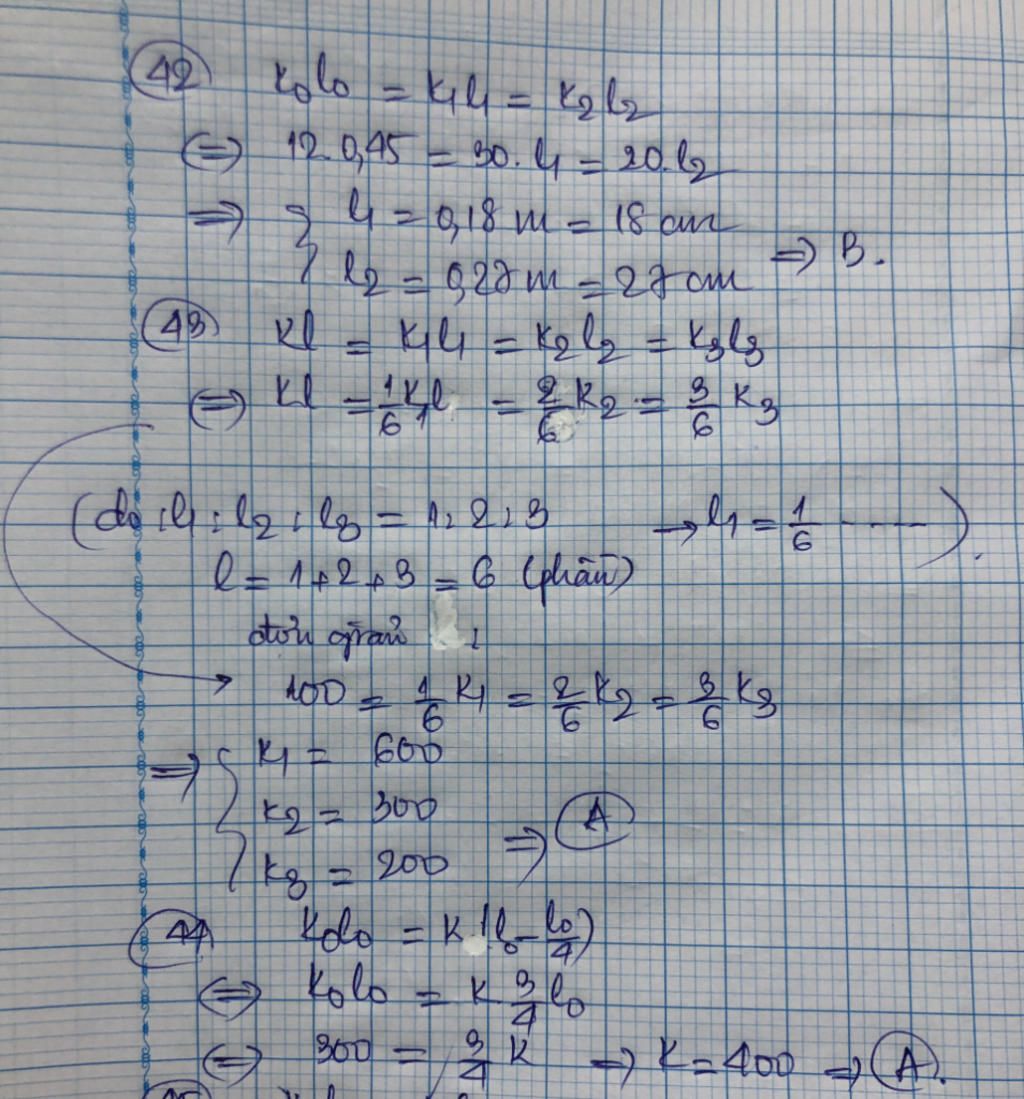 42 K₀l₀ = K₁l₁ = K₂l₂
⇔ 12.0,45 = 30.l₁ = 20.l₂
⇒ { l₁ = 0,18 m = 18 cm
l₂ = 0,27 m = 27 cm ⇒ B.
43 Kl = K₁l₁ = K₂l₂ = K₃l₃
⇔ Kl = 1/6 K₁l = 2/6 K₂ = 3/6 K₃
(do l₁ : l₂ : l₃ = 1 : 2 : 3 → l₁ = 1/6 ......).
l = 1+2+3 = 6 (phần)
đơn giản :
100 = 1/6 K₁ = 2/6 K₂ = 3/6 K₃
⇒ { K₁ = 600
K₂ = 300 ⇒ A
K₃ = 200
44 K₀l₀ = K (l₀ - l₀/4)
⇔ K₀l₀ = K 3/4 l₀
⇔ 300 = 3/4 K ⇒ K = 400 ⇒ A.